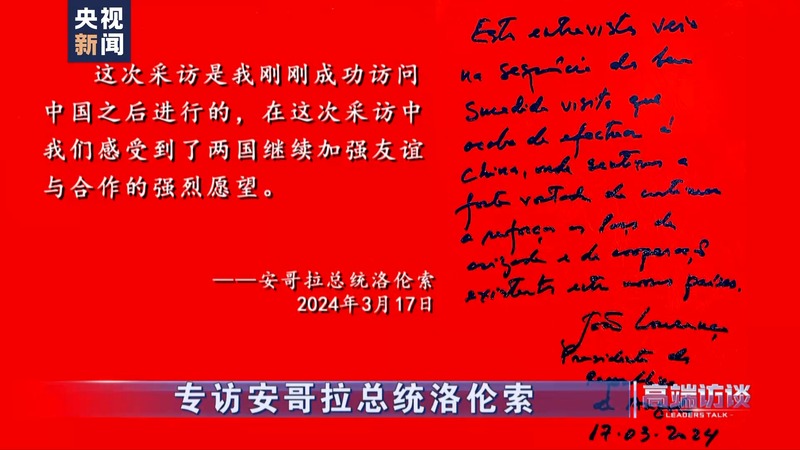 央视
新闻
这次采访是我刚刚成功访问
中国之后进行的，在这次采访中
我们感受到了两国继续加强友谊
与合作的强烈愿望。
——安哥拉总统洛伦索
2024年3月17日
Esta entrevista vem
na sequência da bem
sucedida visita que
acabo de efectuar à
China, onde sentimos a
forte vontade de continuar
a reforçar os laços de
amizade e de cooperação
existente entre nossos países.
João Lourenço
Presidente da
República
de Angola
17.03.2024
专访安哥拉总统洛伦索
高端访谈
LEADERS TALK